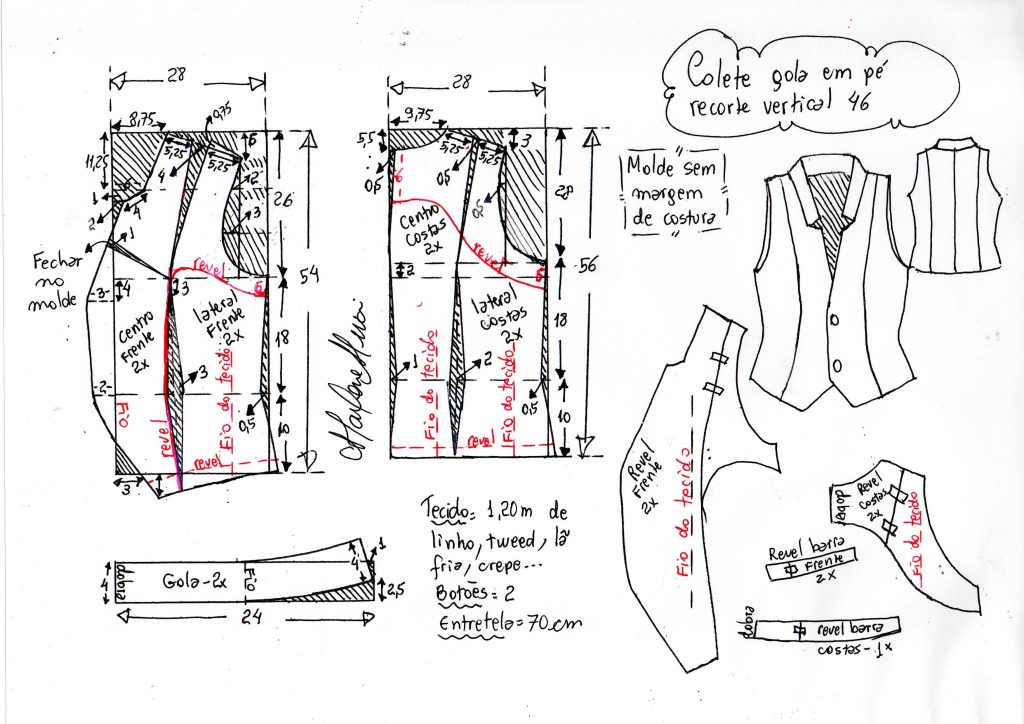 Colete gola em pé
recorte vertical 46
Molde sem
margem
de costura
28
8,75
0,75
11,25
5,25
5,25
6
4
2
3
1
2
4
26
54
1
Fechar
no
molde
revel
6
3
4
3
Centro
Frente
2x
lateral
Frente
2x
18
3
2
Fio
revel
Fio do tecido
0,5
10
revel
3
28
9,75
5,5
5,25
5,25
3
0,5
0,5
6
28
56
Centro
Costas
2x
revel
2
6
lateral
costas
2x
18
1
2
Fio do tecido
Fio do tecido
0,5
10
revel
Marlene Mukai
4
dobra
Gola-2x
Fio
4
1
2,5
24
Tecido= 1,20m de
linho, tweed, lã
fria, crepe...
Botões= 2
Entretela=70cm
Revel
Frente
2x
Fio do tecido
dobra
Revel
Costas
2x
Fio do tecido
Revel barra
Frente
2x
dobra
revel barra
costas-1x